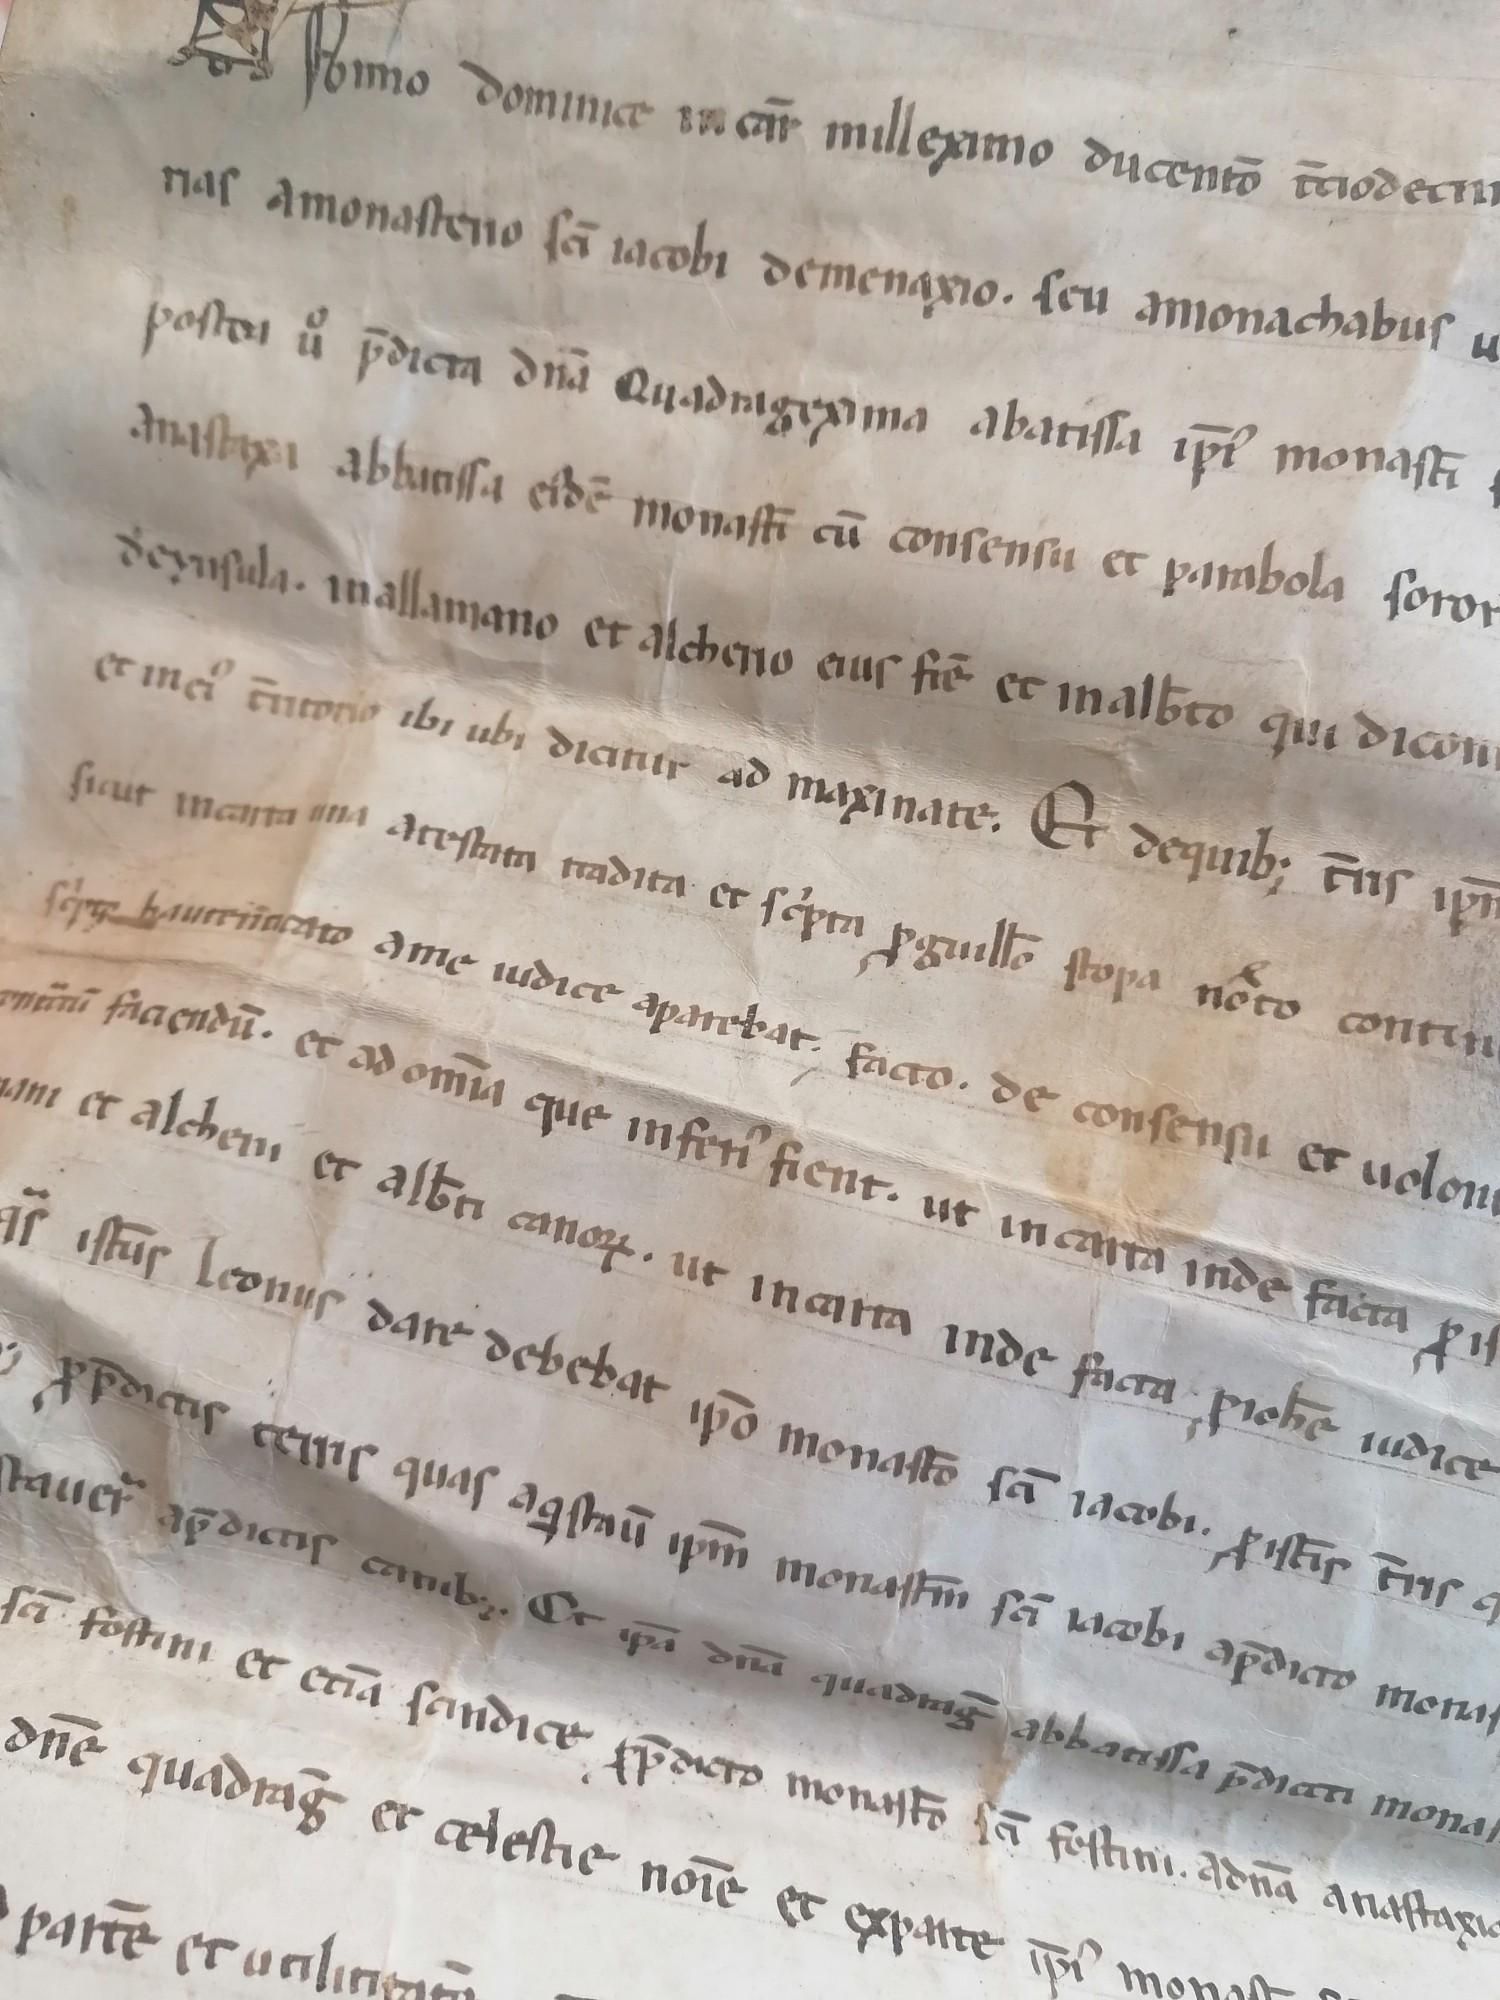 Anno dominice incar̄ milleximo ducento᷑ t̄ciodecim
rias amonasterio sc̄i iacobi demenaxio. seu amonachabus u
postea uͦ p̄dicta dn̄a Quadragexima abatissa ip̄i᷒ monast̄i
anastaxia abbatissa ei᷒dē monast̄i cū consensu et parabola soror
deynsula. inallamano et alcherio eius fr̄e et inalb̄to qui dicont
et inei᷒ t̄ritorio ibi ubi dicitur ad maxinate. Et dequib; t̄ris ip̄m
sicut incarta una atestata tradita et sc'pta ꝑguill̄o stopa noto contin
autenticato ame iudice aparebat. facto. de consensu et uolont
faciendū. et ad om̄ia que inferi᷒ fient. ut incarta inde facta ꝑ is
mani et alcherii et alb̄ti canoꝝ. ut incarta inde facta ꝑioh̄e iudice
ist̄us leonus dare debebat ip̄o monast̄o sc̄i iacobi. ꝑist̄is t̄ris q
ꝑp̄dictis terris quas aq'staū ip̄m monast̄m sc̄i iacobi ap̄dicto monas
stauer̄ ap̄dictis canib; Et ip̄a dn̄a quadraḡ abbatissa p̄dicti monas
sc̄i fostini et etiā scindice ꝑp̄dicto monast̄o sc̄i fostini. adn̄a anastaxia
dn̄e quadraḡ et celestie noīe et exparte ip̄i᷒ monast̄
partē et utilitatē